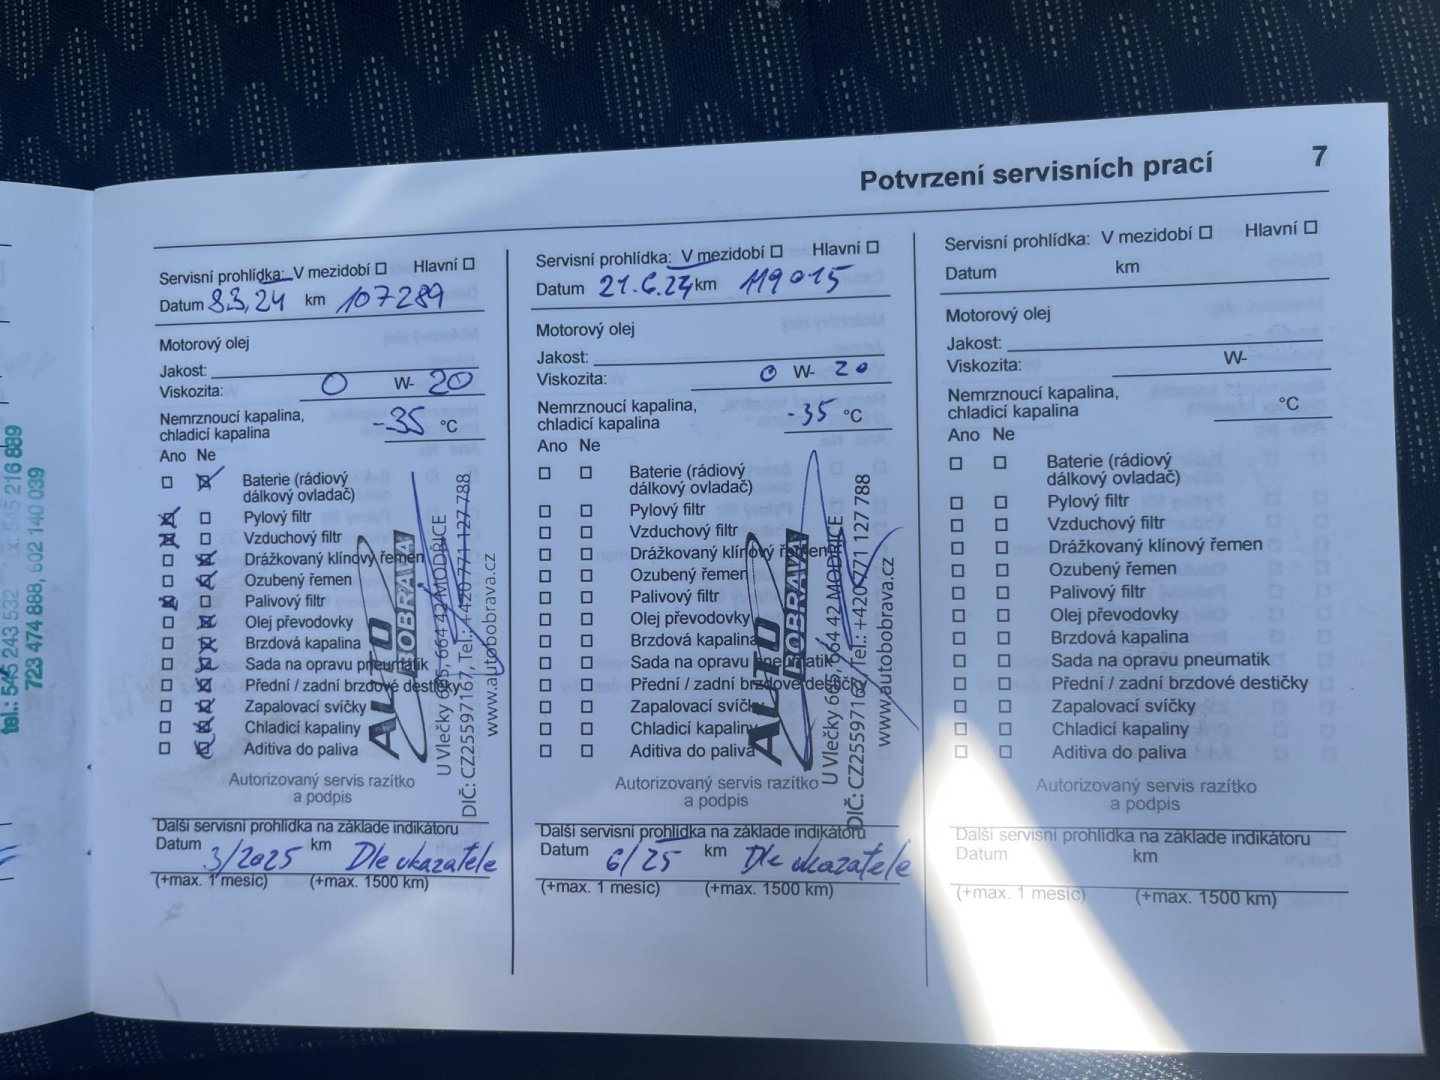 Potvrzení servisních prací 7
Servisní prohlídka: V mezidobí Hlavní
Datum 8.3.24 km 107289
Motorový olej
Jakost:
Viskozita: 0 W- 20
Nemrznoucí kapalina,
chladicí kapalina -35 °C
Ano Ne
Baterie (rádiový
dálkový ovladač)
Pylový filtr
Vzduchový filtr
Drážkovaný klínový řemen
Ozubený řemen
Palivový filtr
Olej převodovky
Brzdová kapalina
Sada na opravu pneumatik
Přední / zadní brzdové destičky
Zapalovací svíčky
Chladicí kapaliny
Aditiva do paliva
AUTO
BOBRAVA
U Vlečky 665, 664 42 MODŘICE
DIČ: CZ25597167, Tel.: +420 771 127 788
www.autobobrava.cz
Autorizovaný servis razítko
a podpis
Další servisní prohlídka na základe indikátoru
Datum 3/2025 km Dle ukazatele
(+max. 1 mesíc) (+max. 1500 km)
Servisní prohlídka: V mezidobí Hlavní
Datum 21.6.24 km 119015
Motorový olej
Jakost:
Viskozita: 0 W- 20
Nemrznoucí kapalina,
chladicí kapalina -35 °C
Ano Ne
Baterie (rádiový
dálkový ovladač)
Pylový filtr
Vzduchový filtr
Drážkovaný klínový řemen
Ozubený řemen
Palivový filtr
Olej převodovky
Brzdová kapalina
Sada na opravu pneumatik
Přední / zadní brzdové destičky
Zapalovací svíčky
Chladicí kapaliny
Aditiva do paliva
AUTO
BOBRAVA
U Vlečky 665, 664 42 MODŘICE
DIČ: CZ25597167, Tel.: +420 771 127 788
www.autobobrava.cz
Autorizovaný servis razítko
a podpis
Další servisní prohlídka na základe indikátoru
Datum 6/25 km Dle ukazatele
(+max. 1 mesíc) (+max. 1500 km)
Servisní prohlídka: V mezidobí Hlavní
Datum km
Motorový olej
Jakost:
Viskozita: W-
Nemrznoucí kapalina,
chladicí kapalina °C
Ano Ne
Baterie (rádiový
dálkový ovladač)
Pylový filtr
Vzduchový filtr
Drážkovaný klínový řemen
Ozubený řemen
Palivový filtr
Olej převodovky
Brzdová kapalina
Sada na opravu pneumatik
Přední / zadní brzdové destičky
Zapalovací svíčky
Chladicí kapaliny
Aditiva do paliva
Autorizovaný servis razítko
a podpis
Další servisní prohlídka na základe indikátoru
Datum km
(+max. 1 mesíc) (+max. 1500 km)
tel.: 545 243 532 545 216 889
723 474 888, 602 140 039